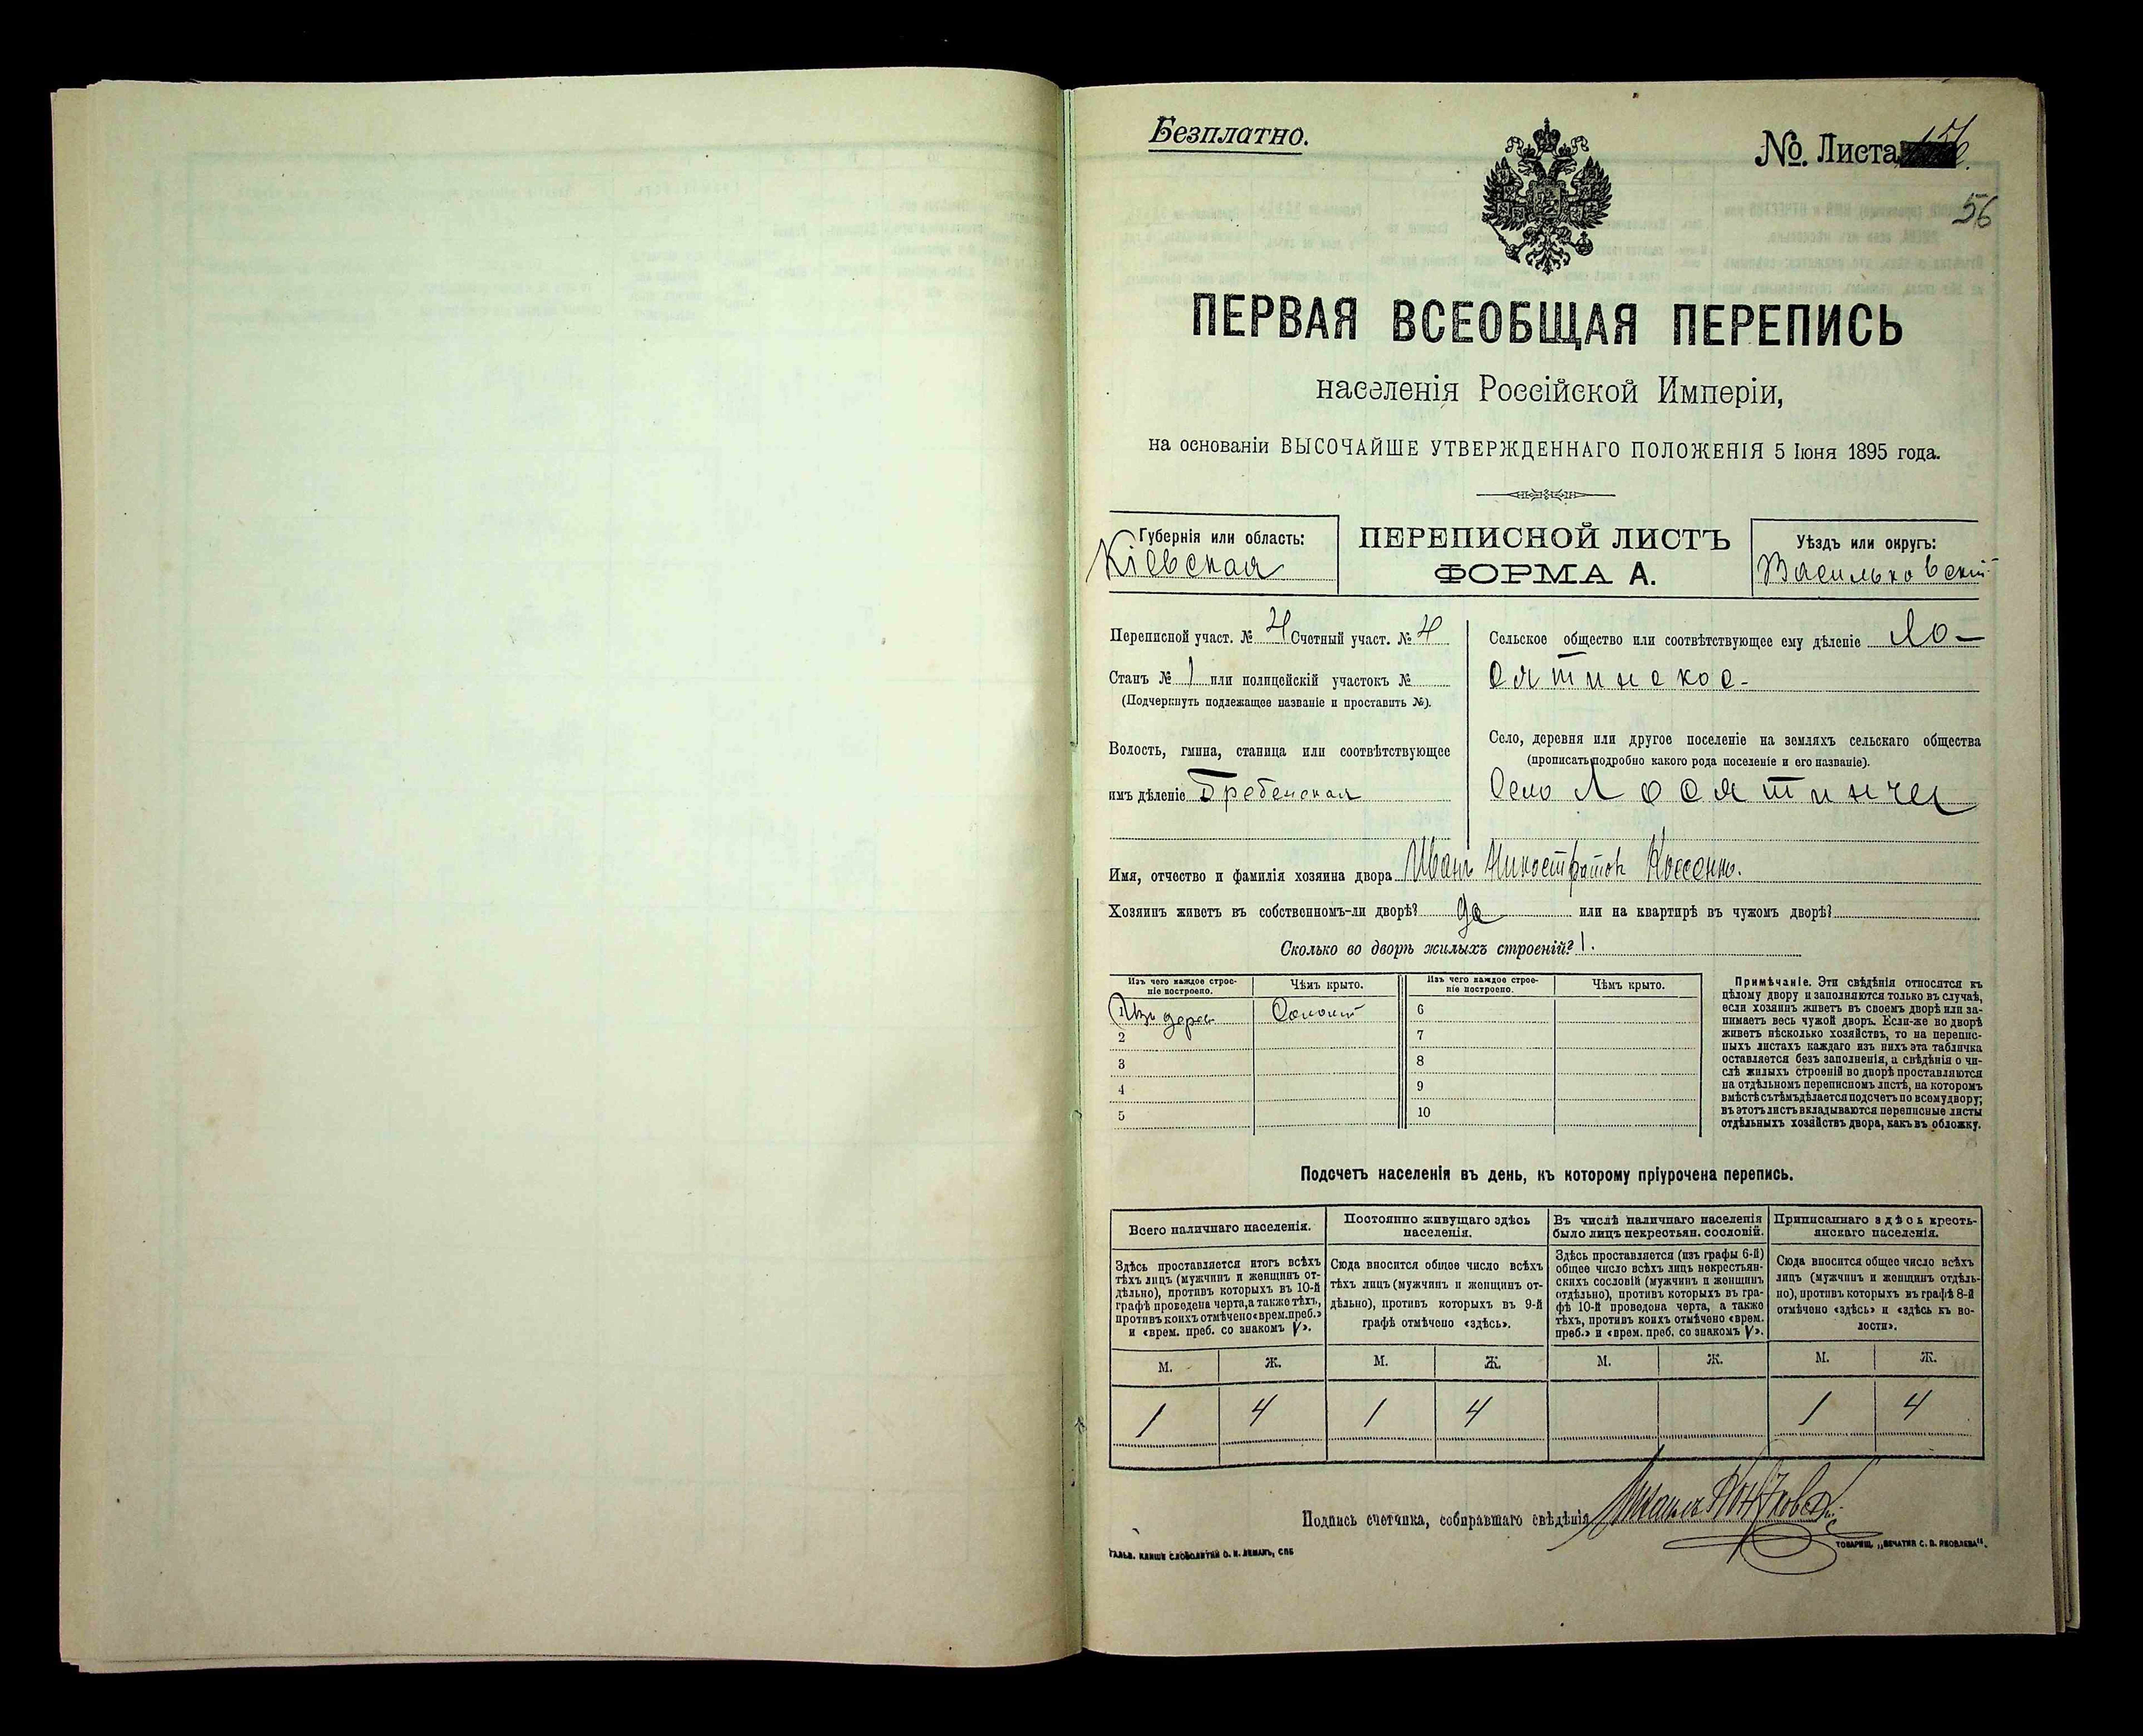 Безплатно.
№ Листа
56
ПЕРВАЯ ВСЕОБЩАЯ ПЕРЕПИСЬ
населенія Россійской Имперіи,
на основаніи ВЫСОЧАЙШЕ УТВЕРЖДЕННАГО ПОЛОЖЕНІЯ 5 Іюня 1895 года.
Губернія или область:
Кіевская
ПЕРЕПИСНОЙ ЛИСТЪ
ФОРМА А.
Уѣздъ или округъ:
Васильковскій
Переписной участ. № 4 Счетный участ. № 4
Станъ № 1 или полицейскій участокъ №
(Подчеркнуть подлежащее названіе и проставить №).
Волость, гмина, станица или соотвѣтствующее
имъ дѣленіе Гребенская
Сельское общество или соотвѣтствующее ему дѣленіе Ло-
сятинское-
Село, деревня или другое поселеніе на земляхъ сельскаго общества
(прописать подробно какого рода поселеніе и его названіе).
Село Лосятинчи
Имя, отчество и фамилія хозяина двора Иванъ Никостратов Коссенко.
Хозяинъ живетъ въ собственномъ-ли дворѣ? да или на квартирѣ въ чужомъ дворѣ?
Сколько во дворѣ жилыхъ строеній? 1.
Изъ чего каждое строе-
ніе построено.
Чѣмъ крыто.
Изъ чего каждое строе-
ніе построено.
Чѣмъ крыто.
1 Изъ дерев Солом 6
2 7
3 8
4 9
5 10
Примѣчаніе. Эти свѣдѣнія относятся къ
цѣлому двору и заполняются только въ случаѣ,
если хозяинъ живетъ въ своемъ дворѣ или за-
нимаетъ весь чужой дворъ. Если-же во дворѣ
живетъ нѣсколько хозяйствъ, то на перепис-
ныхъ листахъ каждаго изъ нихъ эта табличка
оставляется безъ заполненія, а свѣдѣнія о чи-
слѣ жилыхъ строеній во дворѣ проставляются
на отдѣльномъ переписномъ листѣ, на которомъ
вмѣстѣ съ тѣмъ дѣлается подсчетъ по всему двору;
въ этотъ листъ вкладываются переписные листы
отдѣльныхъ хозяйствъ двора, какъ въ обложку.
Подсчетъ населенія въ день, къ которому пріурочена перепись.
Всего наличнаго населенія.
Здѣсь проставляется итогъ всѣхъ
тѣхъ лицъ (мужчинъ и женщинъ от-
дѣльно), противъ которыхъ въ 10-й
графѣ проведена черта, а также тѣхъ,
противъ коихъ отмѣчено «врем. преб.»
и «врем. преб. со знакомъ V».
Постоянно живущаго здѣсь
населенія.
Сюда вносится общее число всѣхъ
тѣхъ лицъ (мужчинъ и женщинъ от-
дѣльно), противъ которыхъ въ 9-й
графѣ отмѣчено «здѣсь».
Въ числѣ наличнаго населенія
было лицъ некрестьян. сословій.
Здѣсь проставляется (изъ графы 6-й)
общее число всѣхъ лицъ некрестьян-
скихъ сословій (мужчинъ и женщинъ
отдѣльно), противъ которыхъ въ гра-
фѣ 10-й проведена черта, а также
тѣхъ, противъ коихъ отмѣчено «врем.
преб.» и «врем. преб. со знакомъ V».
Приписаннаго здѣсь кресть-
янскаго населенія.
Сюда вносится общее число всѣхъ
лицъ (мужчинъ и женщинъ отдѣль-
но), противъ которыхъ въ графѣ 8-й
отмѣчено «здѣсь» и «здѣсь къ во-
лости».
М. Ж. М. Ж. М. Ж. М. Ж.
1 4 1 4 1 4
Подпись счетчика, собиравшаго свѣдѣнія Михаилъ
ГАЛЬВ. КЛИШЕ СЛОВОЛИТНИ О. И. ЛЕМАНЪ, СПБ
ТОВАРИЩ. „ПЕЧАТНЯ С. П. ЯКОВЛЕВА".